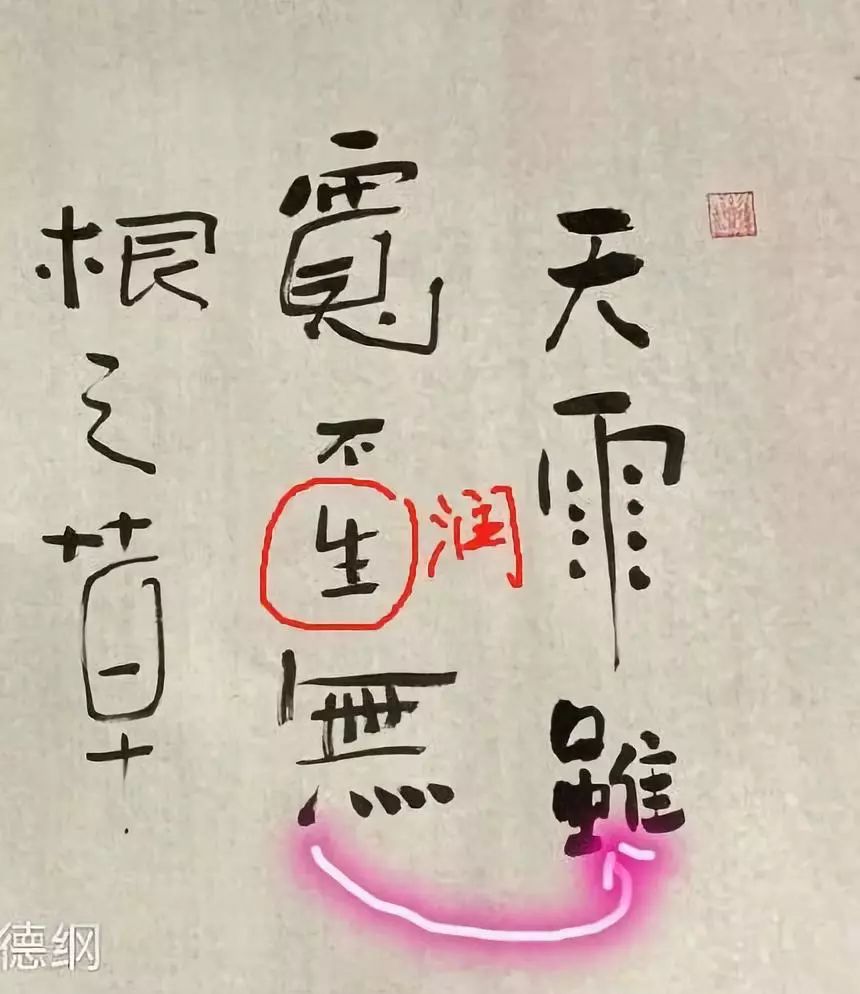 天雨雖
寬不生無
根之草
润
德纲